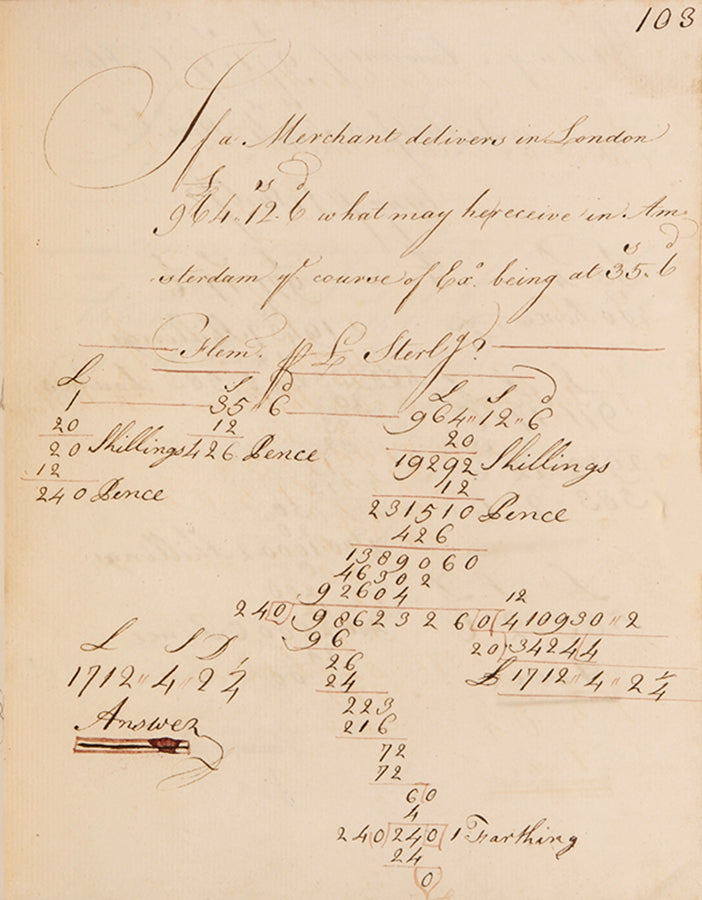 103
If a Merchant delivers in London
£ s d
964,, 12,, 6 what may he receive in Am=
s d
sterdam ye course of Exo. being at 35,, 6
Flem. p £ Sterlg?
£ s d £ S D
1 35 ,, 6 964,, 12,, 6
20 12 20
20 Shillings 426 Pence 19292 Shillings
12 12
240 Pence 231510 Pence
426
1389060
46302
92604 12
240 98623260 410930,, 2
96 20 34244
£ S D 26 £ 1712,, 4,, 2 1/4
24
1712,, 4,, 2 1/4 223
Answer 216
72
72
60
4
240 240 1 Farthing
24
0